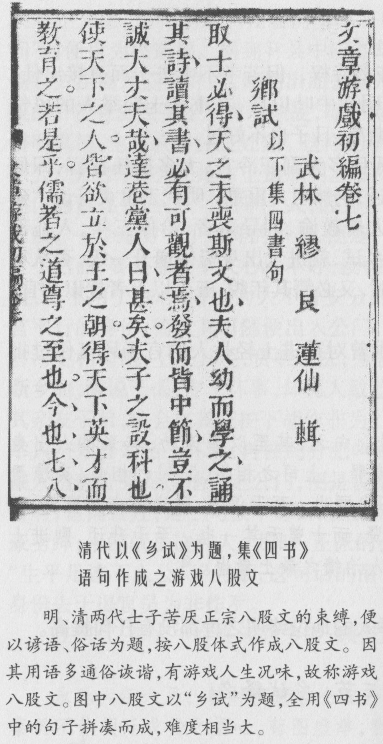 文章游戲初編卷七
武林繆艮蓮仙輯
鄉試以下集四書句
取士必得天之未喪斯文也夫幼而學之誦
其詩讀其書必有可觀者焉發而皆中節豈不
誠大丈夫哉達巷黨人曰甚矣夫子之設科也
使天下之人皆欲立於王之朝得天下英才而
教育之若是乎儒者之道尊之至也今也七八
清代以《乡试》为题，集《四书》
语句作成之游戏八股文
明、清两代士子苦厌正宗八股文的束缚，便
以谚语、俗话为题，按八股体式作成八股文。因
其用语多通俗诙谐，有游戏人生况味，故称游戏
八股文。图中八股文以“乡试”为题，全用《四书》
中的句子拼凑而成，难度相当大。